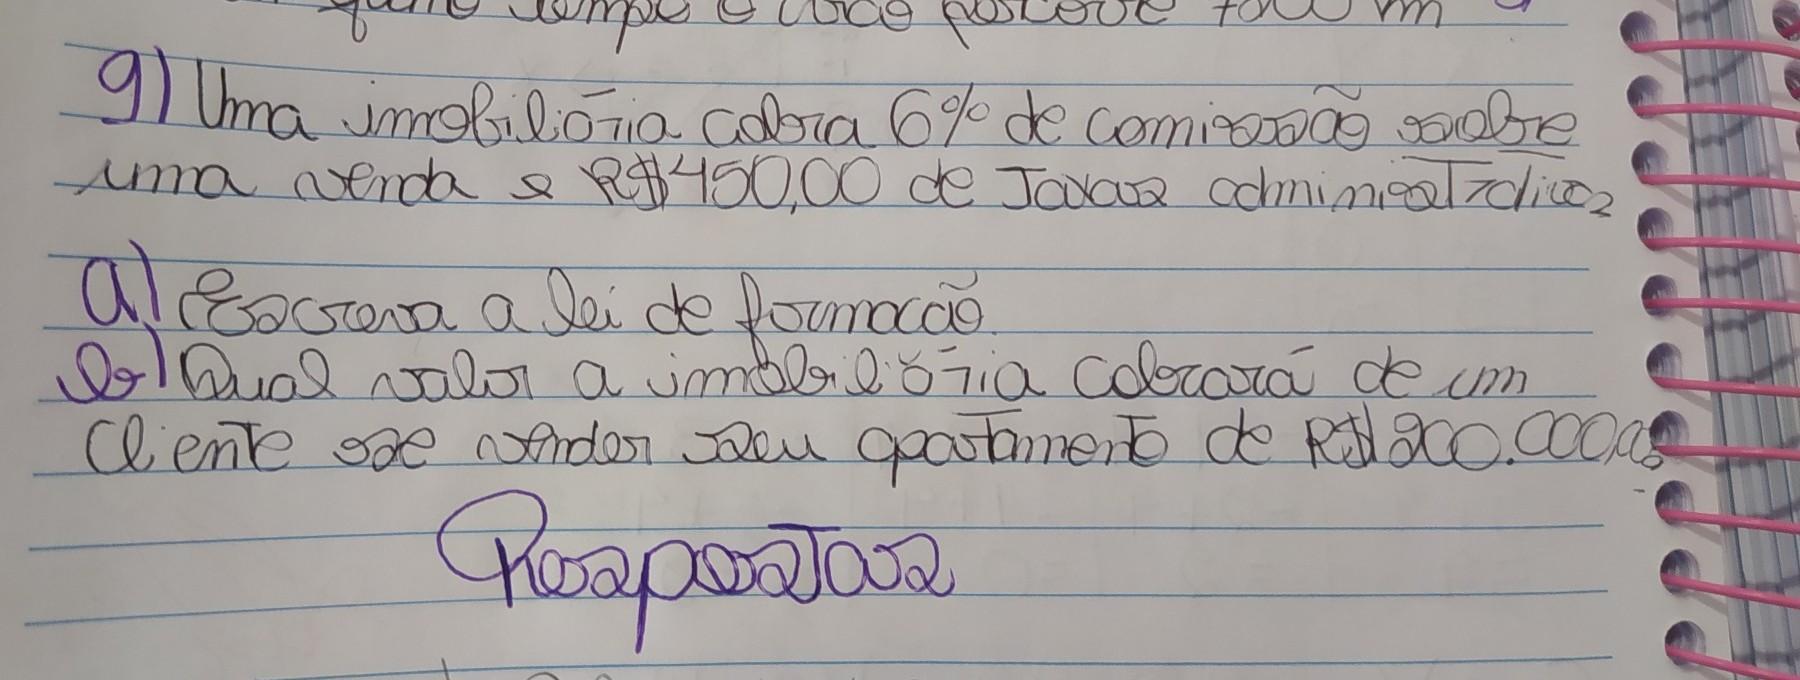 quanto tempo e
9) Uma imobiliária cobra 6% de comissão sobre
uma venda e R$450,00 de Taxas administrativas
a) Escreva a lei de formacão.
b) Qual valor a imobiliária cobrará de um
Cliente se vender seu apartamento de R$ 200.000,00
Respostas